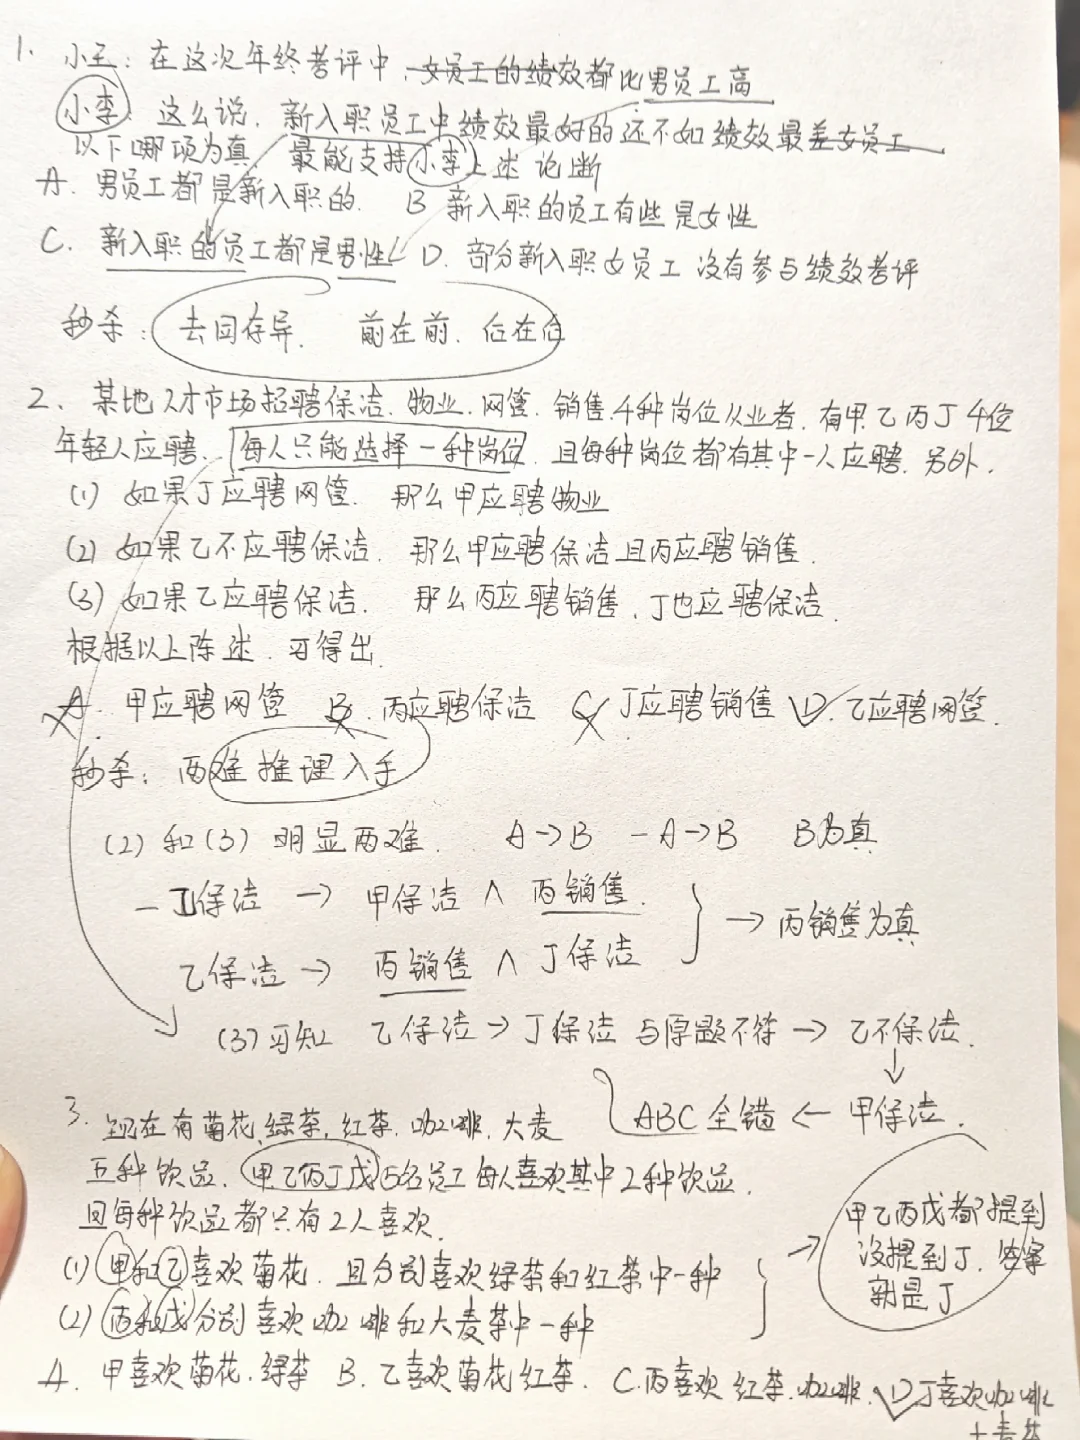 1. 小王：在这次年终考评中，女员工的绩效都比男员工高
小李：这么说，新入职员工中绩效最好的还不如绩效最差女员工
以下哪项为真 最能支持小李上述论断
A. 男员工都是新入职的. B 新入职的员工有些是女性
C. 新入职的员工都是男性 D. 部分新入职女员工 没有参与绩效考评
秒杀：去同存异. 前在前. 后在后
2、某地人才市场招聘保洁.物业.网管.销售.4种岗位从业者.有甲乙丙丁4位
年轻人应聘.每人只能选择一种岗位.且每种岗位都有其中一人应聘.另外.
(1) 如果丁应聘网管. 那么甲应聘物业
(2) 如果乙不应聘保洁. 那么甲应聘保洁且丙应聘销售.
(3) 如果乙应聘保洁. 那么丙应聘销售.丁也应聘保洁.
根据以上陈述.可得出.
A. 甲应聘网管 B. 丙应聘保洁 C 丁应聘销售 D. 乙应聘网管.
秒杀：两难推理入手
(2) 和 (3) 明显两难. A→B -A→B B为真
-乙保洁 → 甲保洁 ∧ 丙销售.
→ 丙销售为真
乙保洁 → 丙销售 ∧ 丁保洁
(3)可知 乙保洁→丁保洁 与原题不符→ 乙不保洁.
↓
ABC全错 ← 甲保洁.
3. 现在有菊花.绿茶.红茶.咖啡.大麦
五种饮品.甲乙丙丁戊5名员工每人喜欢其中2种饮品.
且每种饮品都只有2人喜欢.
(1) 甲和乙喜欢菊花.且分别喜欢绿茶和红茶中一种
(2) 丙和戊分别喜欢咖啡和大麦茶中一种
→ 甲乙丙戊都提到
没提到丁.答案
就是丁
A. 甲喜欢菊花.绿茶 B. 乙喜欢菊花红茶. C.丙喜欢红茶.咖啡. D丁喜欢咖啡
大麦茶